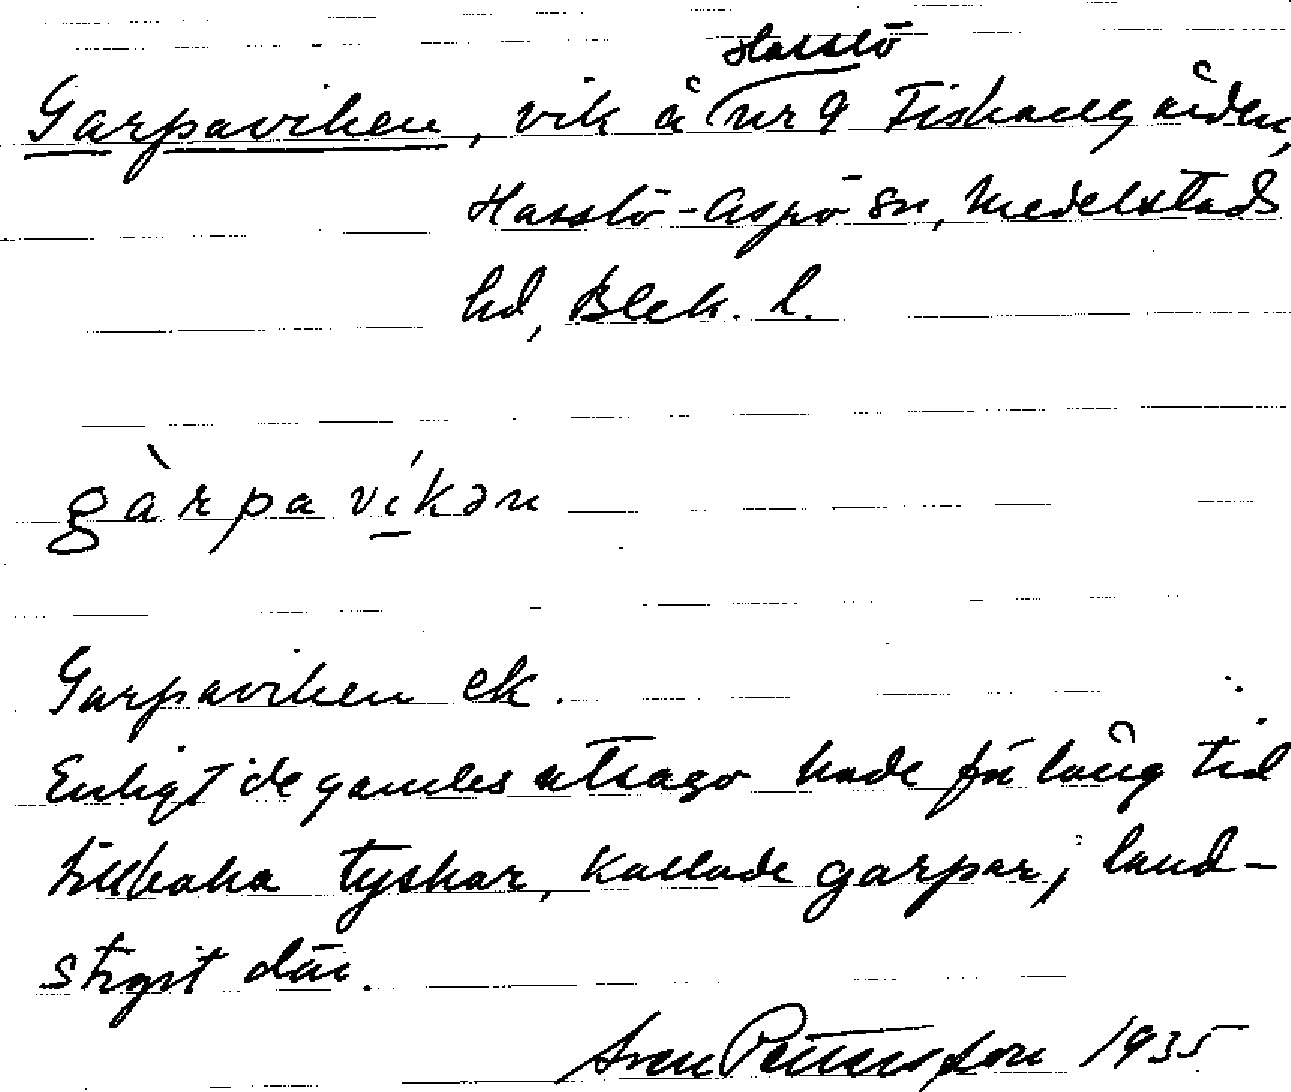 Hasslö
Garpaviken, vik å nr 9 Fiskaregården,
Hasslö-Aspö sn, Medelstads
hd, Blek. l.
gàrpavíkən
Garpaviken ek.
Enligt de gamles utsago hade för lång tid
tillbaka tyskar, kallade garpar, land-
stigit där.
Sven Pettersson 1935